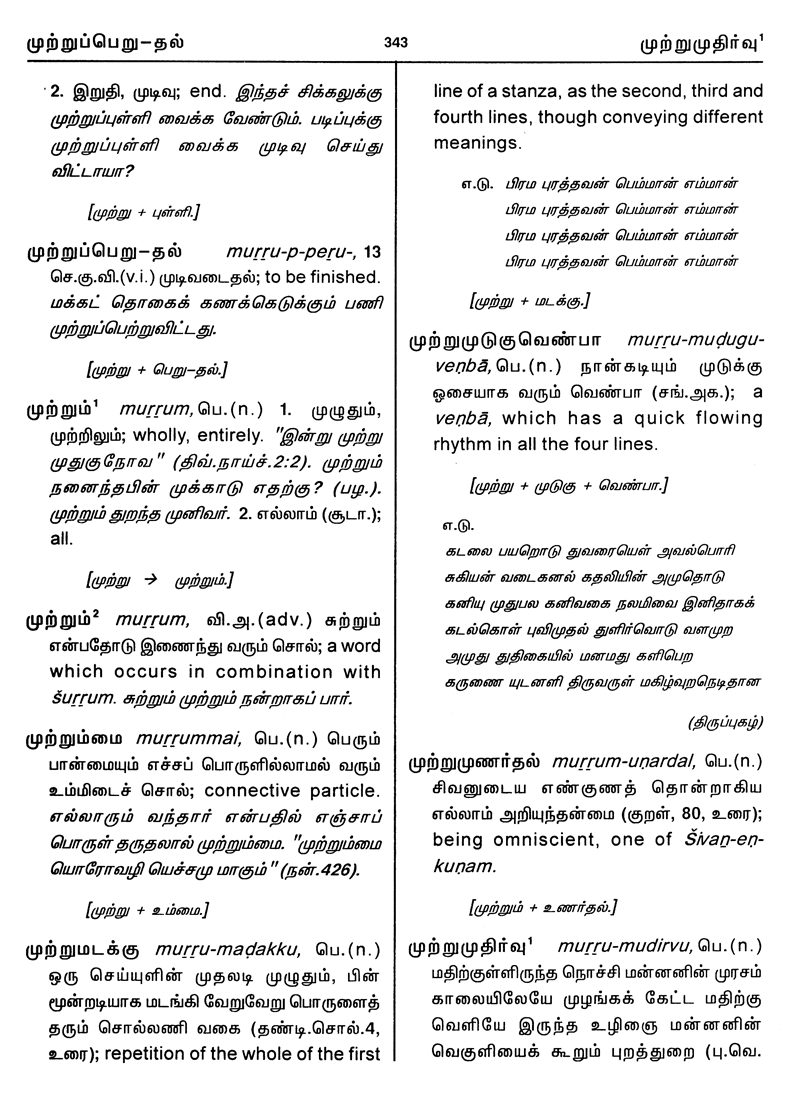 முற்றுப்பெறு–தல்
343
முற்றுமுதிர்வு¹
2. இறுதி, முடிவு; end. இந்தச் சிக்கலுக்கு
முற்றுப்புள்ளி வைக்க வேண்டும். படிப்புக்கு
முற்றுப்புள்ளி வைக்க முடிவு செய்து
விட்டாயா?
[முற்று + புள்ளி.]
முற்றுப்பெறு–தல் muṟṟu-p-peṟu-, 13
செ.கு.வி.(v.i.) முடிவடைதல்; to be finished.
மக்கட் தொகைக் கணக்கெடுக்கும் பணி
முற்றுப்பெற்றுவிட்டது.
[முற்று + பெறு–தல்.]
முற்றும்¹ muṟṟum, பெ.(n.) 1. முழுதும்,
முற்றிலும்; wholly, entirely. "இன்று முற்று
முதுகுநோவ" (திவ்.நாய்ச்.2:2). முற்றும்
நனைந்தபின் முக்காடு எதற்கு? (பழ.).
முற்றும் துறந்த முனிவர். 2. எல்லாம் (சூடா.);
all.
[முற்று → முற்றும்.]
முற்றும்² muṟṟum, வி.அ.(adv.) சுற்றும்
என்பதோடு இணைந்து வரும் சொல்; a word
which occurs in combination with
šuṟṟum. சுற்றும் முற்றும் நன்றாகப் பார்.
முற்றும்மை muṟṟummai, பெ.(n.) பெரும்
பான்மையும் எச்சப் பொருளில்லாமல் வரும்
உம்மிடைச் சொல்; connective particle.
எல்லாரும் வந்தார் என்பதில் எஞ்சாப்
பொருள் தருதலால் முற்றும்மை. "முற்றும்மை
யொரோவழி யெச்சமு மாகும்" (நன்.426).
[முற்று + உம்மை.]
முற்றுமடக்கு muṟṟu-maḍakku, பெ.(n.)
ஒரு செய்யுளின் முதலடி முழுதும், பின்
மூன்றடியாக மடங்கி வேறுவேறு பொருளைத்
தரும் சொல்லணி வகை (தண்டி.சொல்.4,
உரை); repetition of the whole of the first
line of a stanza, as the second, third and
fourth lines, though conveying different
meanings.
எ.டு. பிரம புரத்தவன் பெம்மான் எம்மான்
பிரம புரத்தவன் பெம்மான் எம்மான்
பிரம புரத்தவன் பெம்மான் எம்மான்
பிரம புரத்தவன் பெம்மான் எம்மான்
[முற்று + மடக்கு.]
முற்றுமுடுகுவெண்பா muṟṟu-muḍugu-
veṇbā, பெ.(n.) நான்கடியும் முடுக்கு
ஓசையாக வரும் வெண்பா (சங்.அக.); a
veṇbā, which has a quick flowing
rhythm in all the four lines.
[முற்று + முடுகு + வெண்பா.]
எ.டு.
கடலை பயறொடு துவரையெள் அவல்பொரி
சுகியன் வடைகனல் கதலியின் அமுதொடு
கனியு முதுபல கனிவகை நலமிவை இனிதாகக்
கடல்கொள் புவிமுதல் துளிர்வொடு வளமுற
அமுது துதிகையில் மனமது களிபெற
கருணை யுடனளி திருவருள் மகிழ்வுறநெடிதான
(திருப்புகழ்)
முற்றுமுணர்தல் muṟṟum-uṇardal, பெ.(n.)
சிவனுடைய எண்குணத் தொன்றாகிய
எல்லாம் அறியுந்தன்மை (குறள், 80, உரை);
being omniscient, one of Šivaṉ-eṇ-
kuṇam.
[முற்றும் + உணர்தல்.]
முற்றுமுதிர்வு¹ muṟṟu-mudirvu, பெ.(n.)
மதிற்குள்ளிருந்த நொச்சி மன்னனின் முரசம்
காலையிலேயே முழங்கக் கேட்ட மதிற்கு
வெளியே இருந்த உழிஞை மன்னனின்
வெகுளியைக் கூறும் புறத்துறை (பு.வெ.